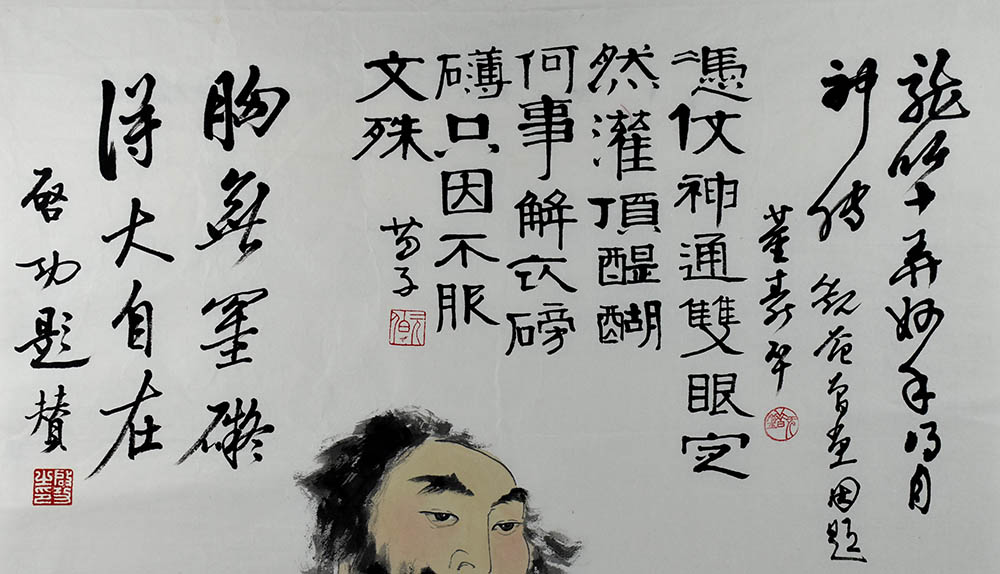 龍妙手得自
神傳 觀范曾畫因題
董壽平
憑仗神通雙眼定
然灌頂醍醐
何事解衣磅
礴只因不服
文殊
苗子
胸無罣礙
得大自在
啓功題贊